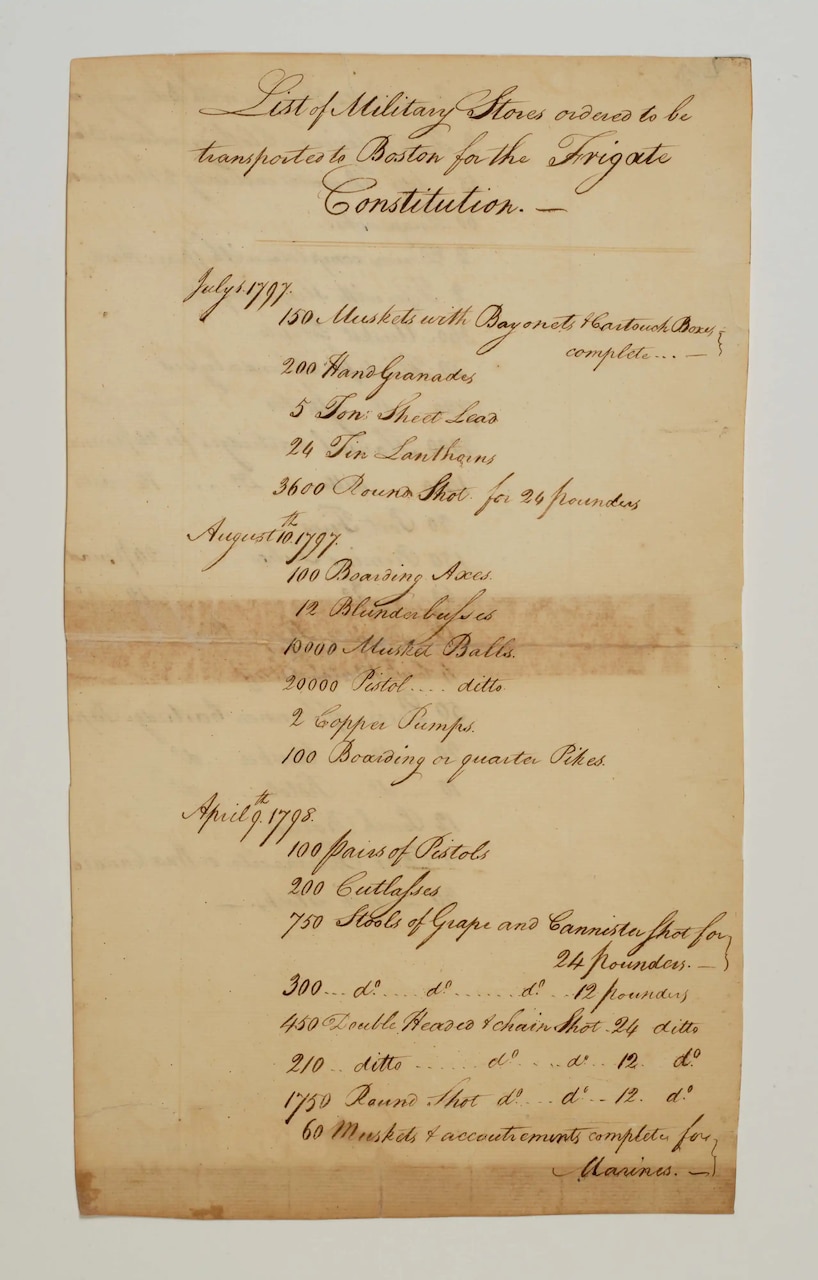 List of Military Stores ordered to be
transported to Boston for the Frigate
Constitution. —
July 1. 1797.
150 Muskets with Bayonets & Cartouch Boxes
complete... —
200 Hand Granades
5 Tons Sheet Lead
24 Tin Lanthorns
3600 Round Shot for 24 pounders
August 10th. 1797.
100 Boarding Axes.
12 Blunderbusses
10000 Musket Balls.
20000 Pistol .... ditto
2 Copper Pumps.
100 Boarding or quarter Pikes.
April 9th. 1798.
100 pairs of Pistols
200 Cutlasses
750 Stools of Grape and Cannister shot for
24 pounders. —
300 ... do. .... do. ...... do. .. 12 pounders
450 Double Headed & chain Shot . 24 ditto
210 .. ditto ...... do. ... do. .. 12. do.
1750 Round Shot do. ... do. .. 12. do.
60 Muskets & accoutrements complete for
Marines. —